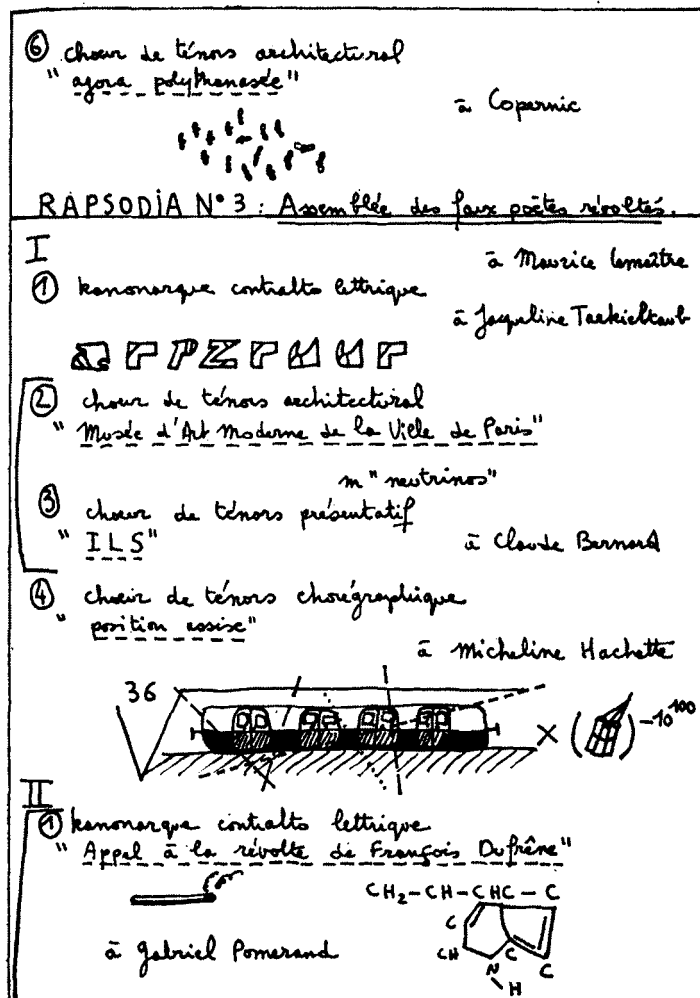 ⑥ chœur de ténors architectural
"agora polythanasée"
à Copernic
RAPSODIA N° 3 : Assemblée des faux poètes révoltés.
I
à Maurice Lemaître
① kanonarque contralto lettrique
à Jacqueline Tarkieltaub
② chœur de ténors architectural
"Musée d'Art Moderne de la Ville de Paris"
m "neutrinos"
③ chœur de ténors présentatif
"ILS"
à Claude Bernard
④ chœur de ténors chorégraphique
"position assise"
à Micheline Hachette
36
× ( )-10^100
II
① kanonarque contralto lettrique
"Appel à la révolte de François Dufrêne"
CH2-CH-CHC-C
C
CH C C
N
H
à Gabriel Pomerand